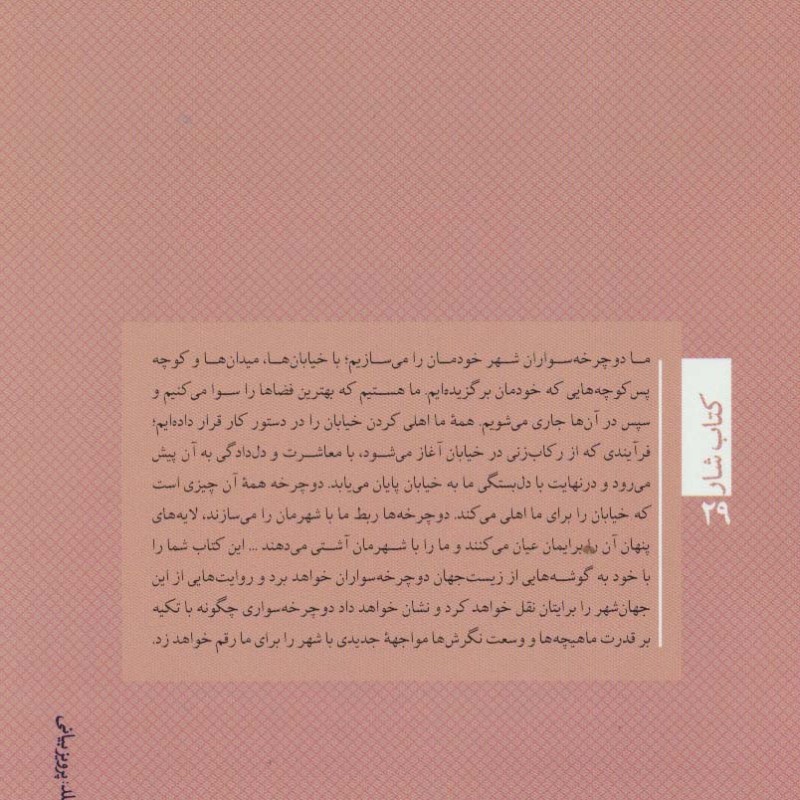 ما دوچرخه‌سواران شهر خودمان را می‌سازیم؛ با خیابان‌ها، میدان‌ها و کوچه
پس‌کوچه‌هایی که خودمان برگزیده‌ایم. ما هستیم که بهترین فضاها را سوا می‌کنیم و
سپس در آن‌ها جاری می‌شویم. همهٔ ما اهلی کردن خیابان را در دستور کار قرار داده‌ایم؛
فرآیندی که از رکاب‌زنی در خیابان آغاز می‌شود، با معاشرت و دل‌دادگی به آن پیش
می‌رود و درنهایت با دل‌بستگی ما به خیابان پایان می‌یابد. دوچرخه همهٔ آن چیزی است
که خیابان را برای ما اهلی می‌کند. دوچرخه‌ها ربط ما با شهرمان را می‌سازند، لایه‌های
پنهان آن را برایمان عیان می‌کنند و ما را با شهرمان آشتی می‌دهند ... این کتاب شما را
با خود به گوشه‌هایی از زیست‌جهان دوچرخه‌سواران خواهد برد و روایت‌هایی از این
جهان‌شهر را برایتان نقل خواهد کرد و نشان خواهد داد دوچرخه‌سواری چگونه با تکیه
بر قدرت ماهیچه‌ها و وسعت نگرش‌ها مواجههٔ جدیدی با شهر را برای ما رقم خواهد زد.
کتاب شار
۲۹
پرویز بیانی